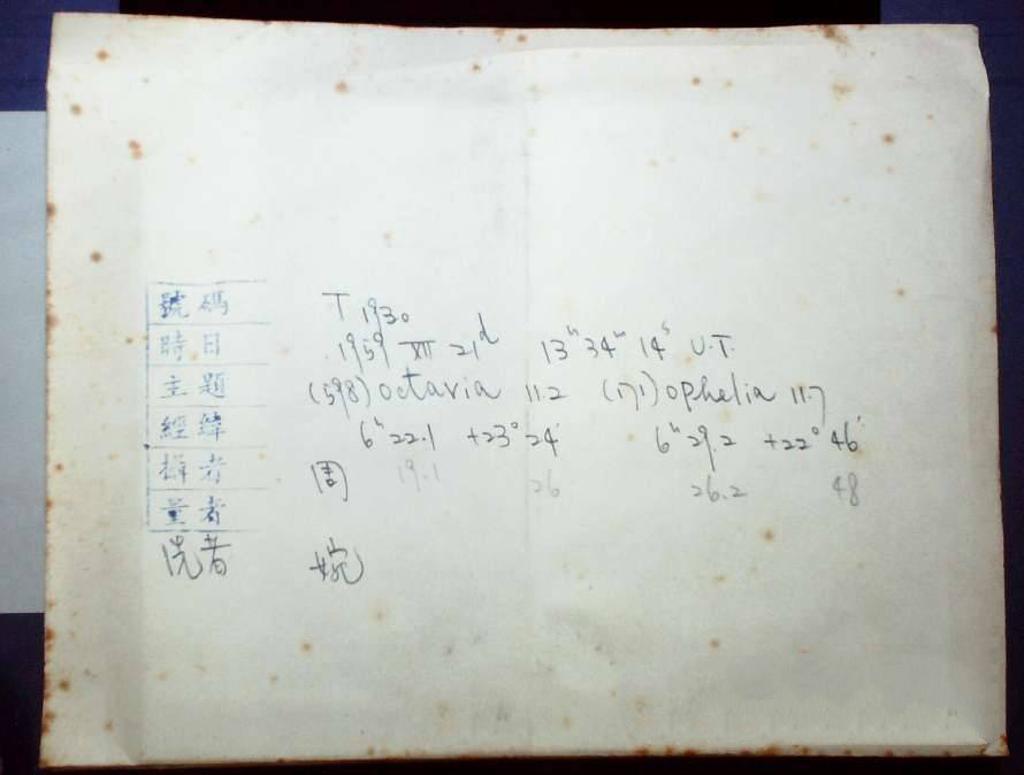 號碼 T 1930
時日 1959 XII 21d 13h 34m 14s U.T.
主題 (598) octavia 11.2 (171) ophelia 11.7
經緯 6h 22.1 +23° 24' 6h 29.2 +22° 46'
19.1 26 26.2 48
攝者 周
量者
洗者 婉